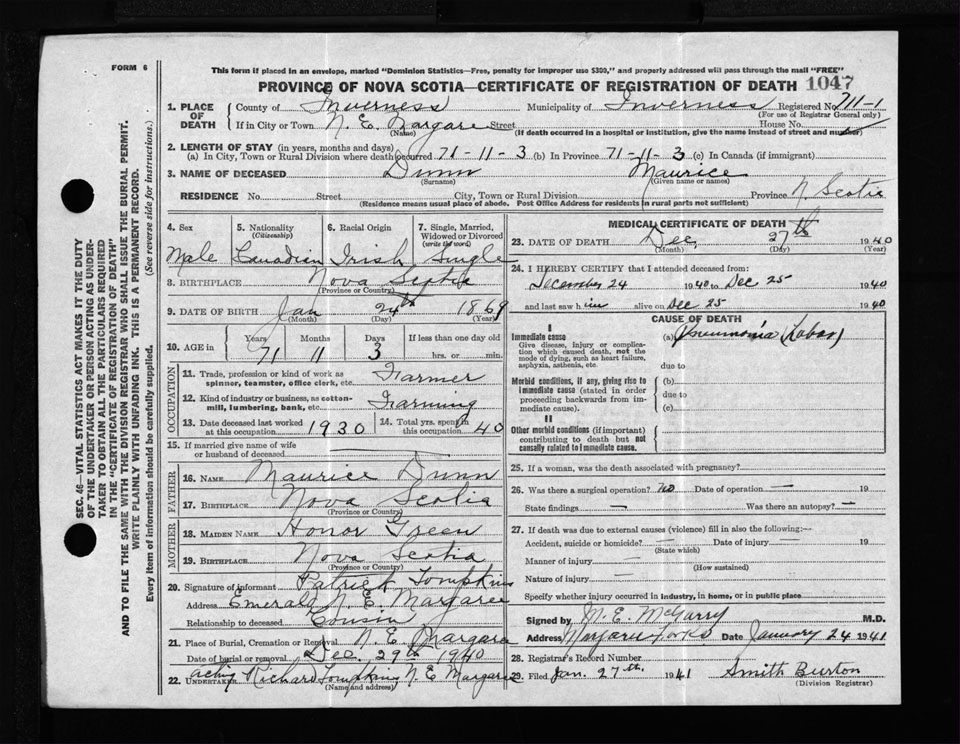 FORM 6
This form if placed in an envelope, marked "Dominion Statistics—Free, penalty for improper use $300," and properly addressed will pass through the mail "FREE"
PROVINCE OF NOVA SCOTIA—CERTIFICATE OF REGISTRATION OF DEATH 1047
1. PLACE OF DEATH County of Inverness Municipality of Inverness Registered No. 711-1
(For use of Registrar General only)
If in City or Town N. E. Margaree Street House No.
(Name) (If death occurred in a hospital or institution, give the name instead of street and number)
2. LENGTH OF STAY (in years, months and days)
(a) In City, Town or Rural Division where death occurred 71-11-3 (b) In Province 71-11-3 (c) In Canada (if immigrant)
3. NAME OF DECEASED Dunn Maurice
(Surname) (Given name or names)
RESIDENCE No. Street City, Town or Rural Division Province N. Scotia
(Residence means usual place of abode. Post Office Address for residents in rural parts not sufficient)
4. Sex 5. Nationality (Citizenship) 6. Racial Origin 7. Single, Married, Widowed or Divorced (write the word)
Male Canadian Irish Single
8. BIRTHPLACE Nova Scotia
(Province or Country)
9. DATE OF BIRTH Jan 24th 1869
(Month) (Day) (Year)
10. AGE in Years Months Days If less than one day old
71 11 3 hrs. or min.
OCCUPATION
11. Trade, profession or kind of work as spinner, teamster, office clerk, etc. Farmer
12. Kind of industry or business, as cotton-mill, lumbering, bank, etc. Farming
13. Date deceased last worked at this occupation 1930 14. Total yrs. spent in this occupation 40
15. If married give name of wife or husband of deceased
FATHER
16. NAME Maurice Dunn
17. BIRTHPLACE Nova Scotia
(Province or Country)
MOTHER
18. MAIDEN NAME Honor Green
19. BIRTHPLACE Nova Scotia
(Province or Country)
20. Signature of informant Patrick Tompkins
Address Emerald N. E. Margaree
Relationship to deceased Cousin
21. Place of Burial, Cremation or Removal N. E. Margaree
Date of burial or removal Dec. 29th 1940
22. UNDERTAKER acting Richard Tompkins N. E. Margaree
(Name and address)
MEDICAL CERTIFICATE OF DEATH
23. DATE OF DEATH Dec. 27th 1940
(Month) (Day) (Year)
24. I HEREBY CERTIFY that I attended deceased from:
December 24 1940 to Dec 25 1940
and last saw him alive on Dec 25 1940
CAUSE OF DEATH
I
Immediate cause (a) Pneumonia (Lobar)
Give disease, injury or complication which caused death, not the mode of dying, such as heart failure, asphyxia, asthenia, etc.
due to
Morbid conditions, if any, giving rise to immediate cause (stated in order proceeding backwards from immediate cause).
(b)
due to
(c)
II
Other morbid conditions (if important) contributing to death but not causally related to immediate cause.
25. If a woman, was the death associated with pregnancy?
26. Was there a surgical operation? no Date of operation — 19
State findings — Was there an autopsy? —
27. If death was due to external causes (violence) fill in also the following:—
Accident, suicide or homicide? — Date of injury — 19
(State which)
Manner of injury —
(How sustained)
Nature of injury —
Specify whether injury occurred in industry, in home, or in public place
Signed by M. E. McGarry M.D.
Address Margaree Forks Date January 24 1941
28. Registrar's Record Number
29. Filed Jan. 27th. 1941 Smith Burton
(Division Registrar)
SEC. 46—VITAL STATISTICS ACT MAKES IT THE DUTY
OF THE UNDERTAKER OR PERSON ACTING AS UNDER-
TAKER TO OBTAIN ALL THE PARTICULARS REQUIRED
IN THE "CERTIFICATE OF REGISTRATION OF DEATH"
AND TO FILE THE SAME WITH THE DIVISION REGISTRAR WHO SHALL ISSUE THE BURIAL PERMIT.
WRITE PLAINLY WITH UNFADING INK. THIS IS A PERMANENT RECORD.
Every item of information should be carefully supplied. (See reverse side for instructions.)